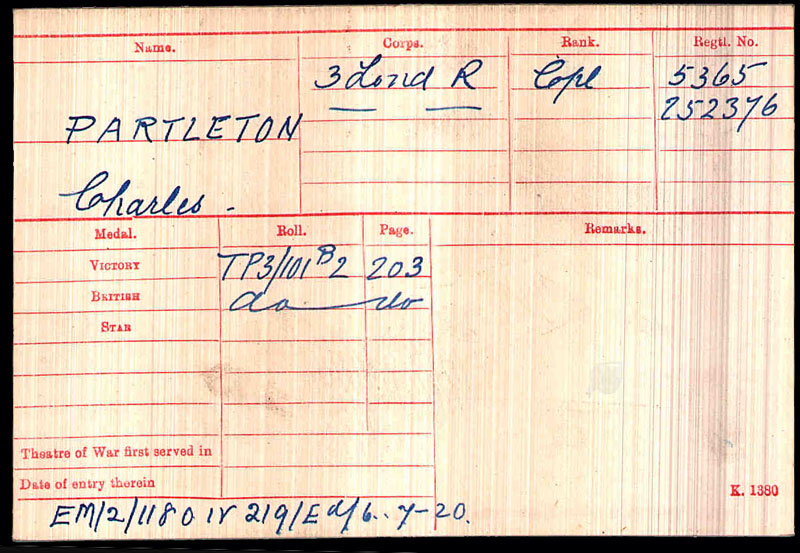 Name. Corps. Rank. Regtl. No.
3 Lond R Copl 5365
252376
PARTLETON
Charles.
Medal. Roll. Page. Remarks.
VICTORY TP3/101 B2 203
BRITISH do do
STAR
Theatre of War first served in
Date of entry therein
K. 1380
EM/2/1180 IV 219/Ed/6.-7-20.